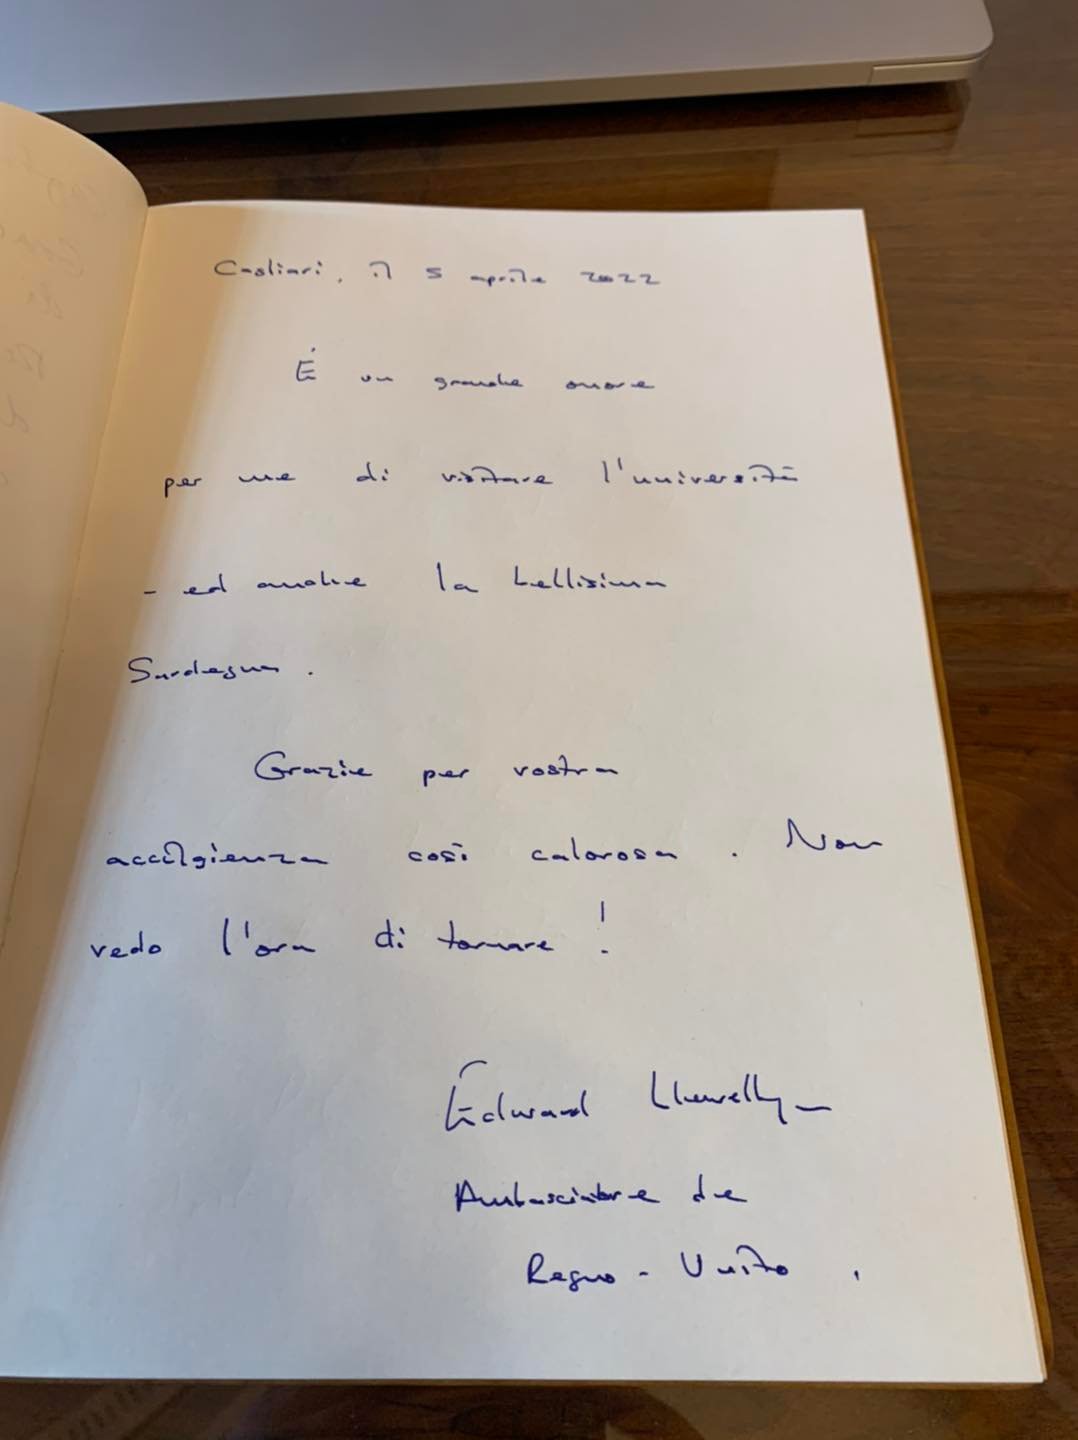 Cagliari, il 5 aprile 2022
É un grande onore
per me di visitare l'università
- ed anche la bellisima
Sardegna.
Grazie per vostra
accilgienza così calorosa. Non
vedo l'ora di tornare!
Edward Llewellyn
Ambasciatore de
Regno-Unito.